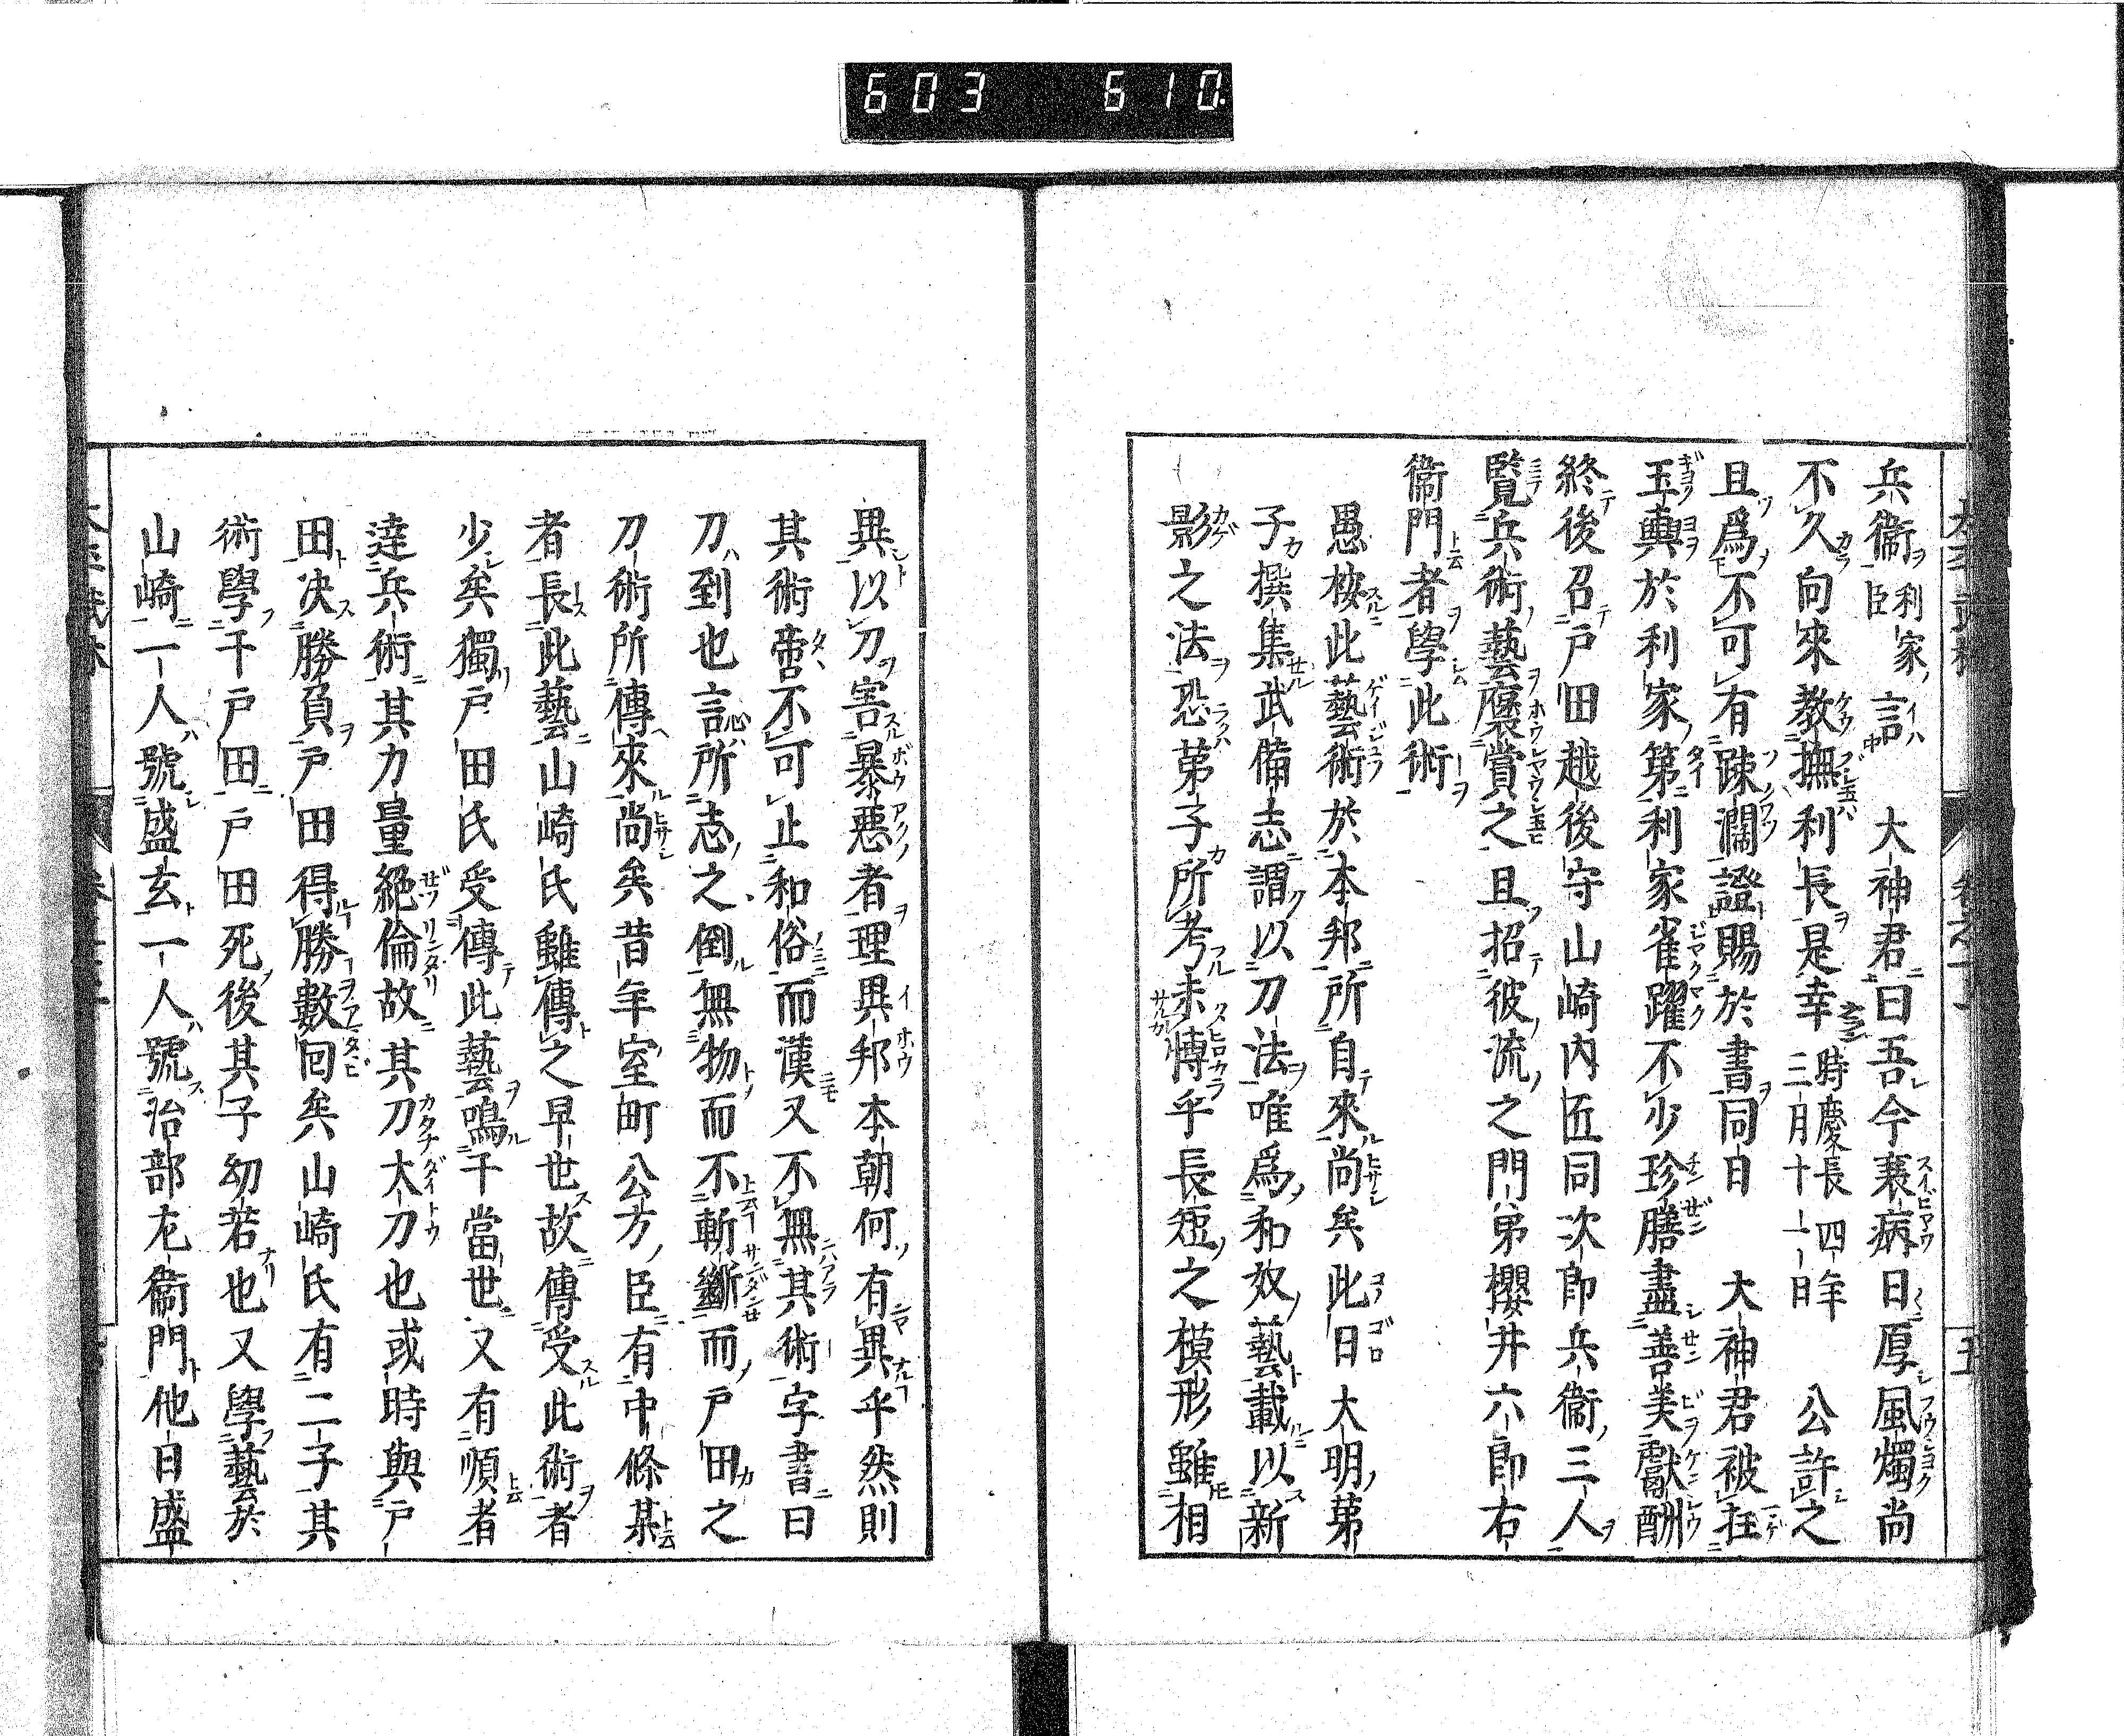 603 610
兵衞利家臣言大神君曰吾今衰病日厚風燭尚
不久向來教撫利長是幸時慶長四年三月十一日公許之
且爲不可有踈濶證賜於書同日大神君被抂
玉輿於利家第利家雀躍不少珍膳盡善美獻酬
終後召戸田越後守山崎内匠同次郎兵衞三人
覧兵術藝褒賞之且招彼流之門弟櫻井六郎右
衞門者學此術
愚桉此藝術於本邦所自來尚矣此日大明茅
子撰集武備志謂以刀法唯爲和奴藝載以新
影之法恐茅子所考未博乎長短之模形雖相
異以刀害暴惡者理異邦本朝何有異乎然則
其術啻不可止和俗而漢又不無其術字書曰
刀到也言所志之倒無物而不斬斷而戸田之
刀術所傳來尚矣昔年室町公方臣有中條某
者長此藝山崎氏雖傳之早世故傳受此術者
少矣獨戸田氏受傳此藝鳴于當世又有順者
達兵術其力量絕倫故其刀大刀也或時與戸
田决勝負戸田得勝數囘矣山崎氏有二子其
術學于戸田戸田死後其子幼若也又學藝於
山崎一人號盛玄一人號治部左衞門他日盛